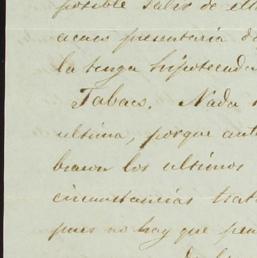 posible salir de ell
acaso presentaria d
la tenga hipotecada
Tabaco. Nada
ultima, porque ant
braron los ultimos
circunstancias trat
pues no hay que pen